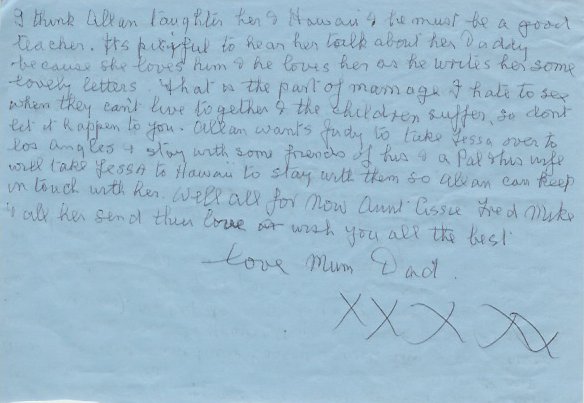 I think Allan taughter her & Hawaii & he must be a good
teacher. Its pityful to hear her talk about her Daddy
because she loves him & he loves her as he writes her some
lovely letters That is the part of marriage I hate to see
when they cant live together & the children suffer, so dont
let it happen to you. Allan wants Judy to take Jessa over to
los Angles & stay with some friends of his & a Pal & his wife
will take Jessa to Hawaii to stay with them so Allan can keep
in touch with her. Well all for now Aunt Cissie Fred Mike
& all her send their love wish you all the best
Love Mum Dad.
X X X X X